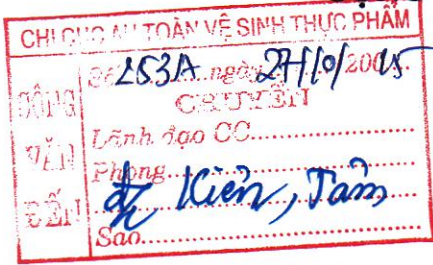 CHI CỤC AN TOÀN VỆ SINH THỰC PHẨM
CÔNG VĂN ĐẾN
Số 253A ngày 27/10/2005 15
CHUYỂN
Lãnh đạo CC
Phòng
đ/c Kiên, Tâm
Sao